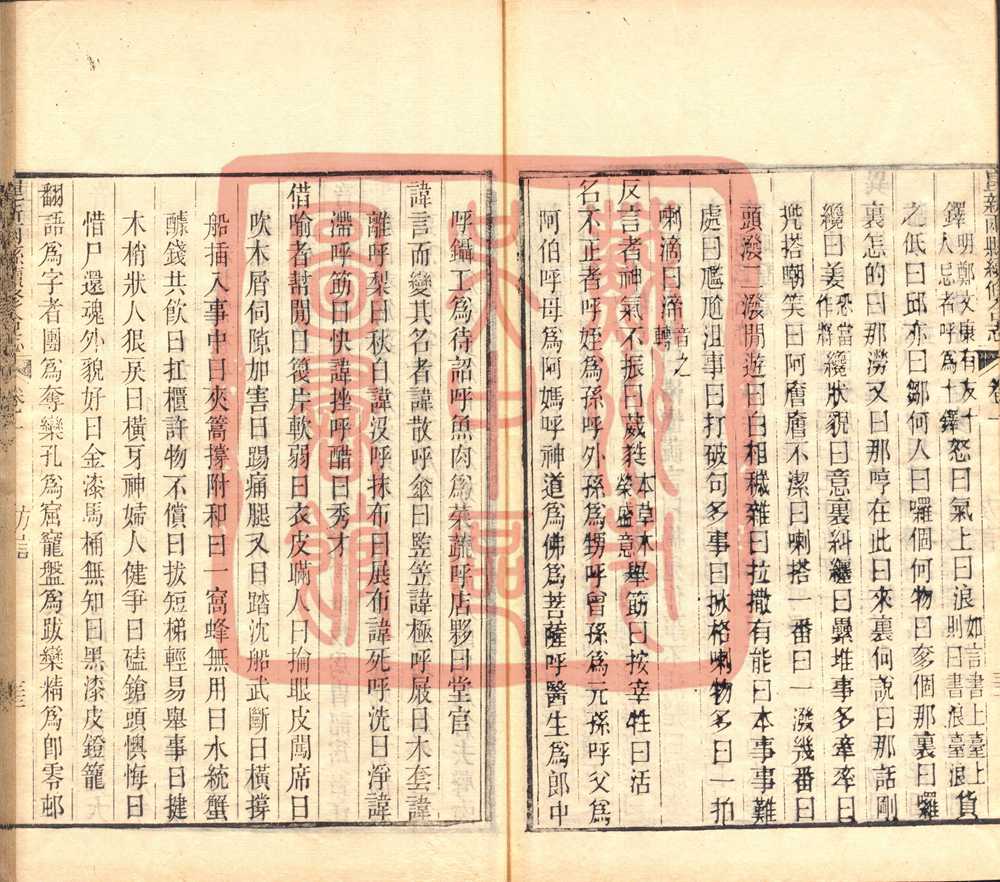 崑新兩縣續修合志 卷一
鐸明鄭文康有友十人忌者呼為十鐸怒曰氣上曰浪如言書上臺上浪則曰書浪臺浪貨
之低曰邱亦曰鄒何人曰囉個何物曰奓個那裏曰囉
裏怎的曰那澇又曰那哼在此曰來裏伺說曰那話剛
纔曰姜恐當作將纔狀貌曰意裏糾纏曰纍堆事多牽牽曰
兠搭嘲笑曰阿廥廥不潔曰喇搭一番曰一潑幾番曰
頭潑二潑閒遊曰白相穢雜曰拉撒有能曰本事事難
處曰尷尬沮事曰打破句多事曰掀格喇物多曰一拍
喇滴曰渧音之轉
反言者神氣不振曰葳蕤本草木榮盛意舉筯曰按宰牲曰活
名不正者呼姪為孫呼外孫為甥呼曾孫為元孫呼父為
阿伯呼母為阿媽呼神道為佛為菩薩呼醫生為郎中
呼鑷工為待詔呼魚肉為菜蔬呼店夥曰堂官
諱言而變其名者諱散呼傘曰豎笠諱極呼屐曰木套諱
離呼梨曰秋白諱沒呼抹布曰展布諱死呼洗曰淨諱
滯呼筯曰快諱挫呼醋曰秀才
借喻者幫閒曰篾片軟弱曰衣皮瞞人曰掄眼皮闖席曰
吹木屑伺隙加害曰踢痛腿又曰踏沈船武斷曰橫撐
船插入事中曰夾篙撐附和曰一窩蜂無用曰水統蟹
醵錢共飲曰扛櫃許物不償曰拔短梯輕易舉事曰揵
木梢狀人狠戾曰橫牙神婦人健爭曰磕鎗頭懊悔曰
惜尸還魂外貌好曰金漆馬桶無知曰黑漆皮鐙籠
翻語為字者團為奪欒孔為窟窿盤為跋欒精為卽零邨
崑新兩縣續修合志 卷一 方言